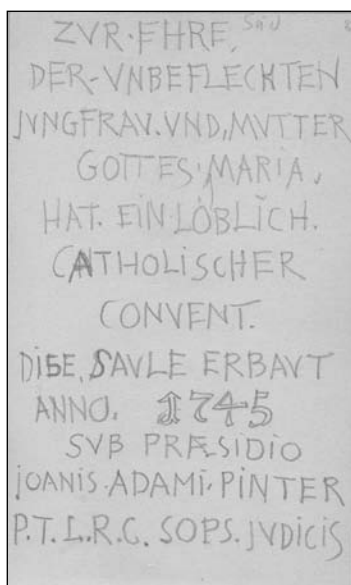 ZVR·EHRE,
DER-VNBEFLECKTEN
JVNGFRAV.VND,MVTTER
GOTTES·MARIA,
HAT. EIN LÖBLICH.
CATHOLISCHER
CONVENT.
DISE, SAVLE ERBAVT
ANNO. 1745
SVB PRÆSIDIO
JOANIS·ADAMI·PINTER
P.T.L.R.C. SOPS. JVDICIS